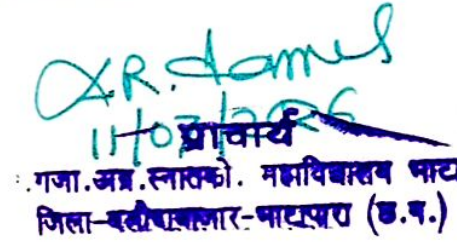 11/07/2026
प्राचार्य
गजा.अग्र.स्नातको. महाविद्यालय भाटा
जिला-बलौदाबाजार-भाटापारा (छ.ग.)